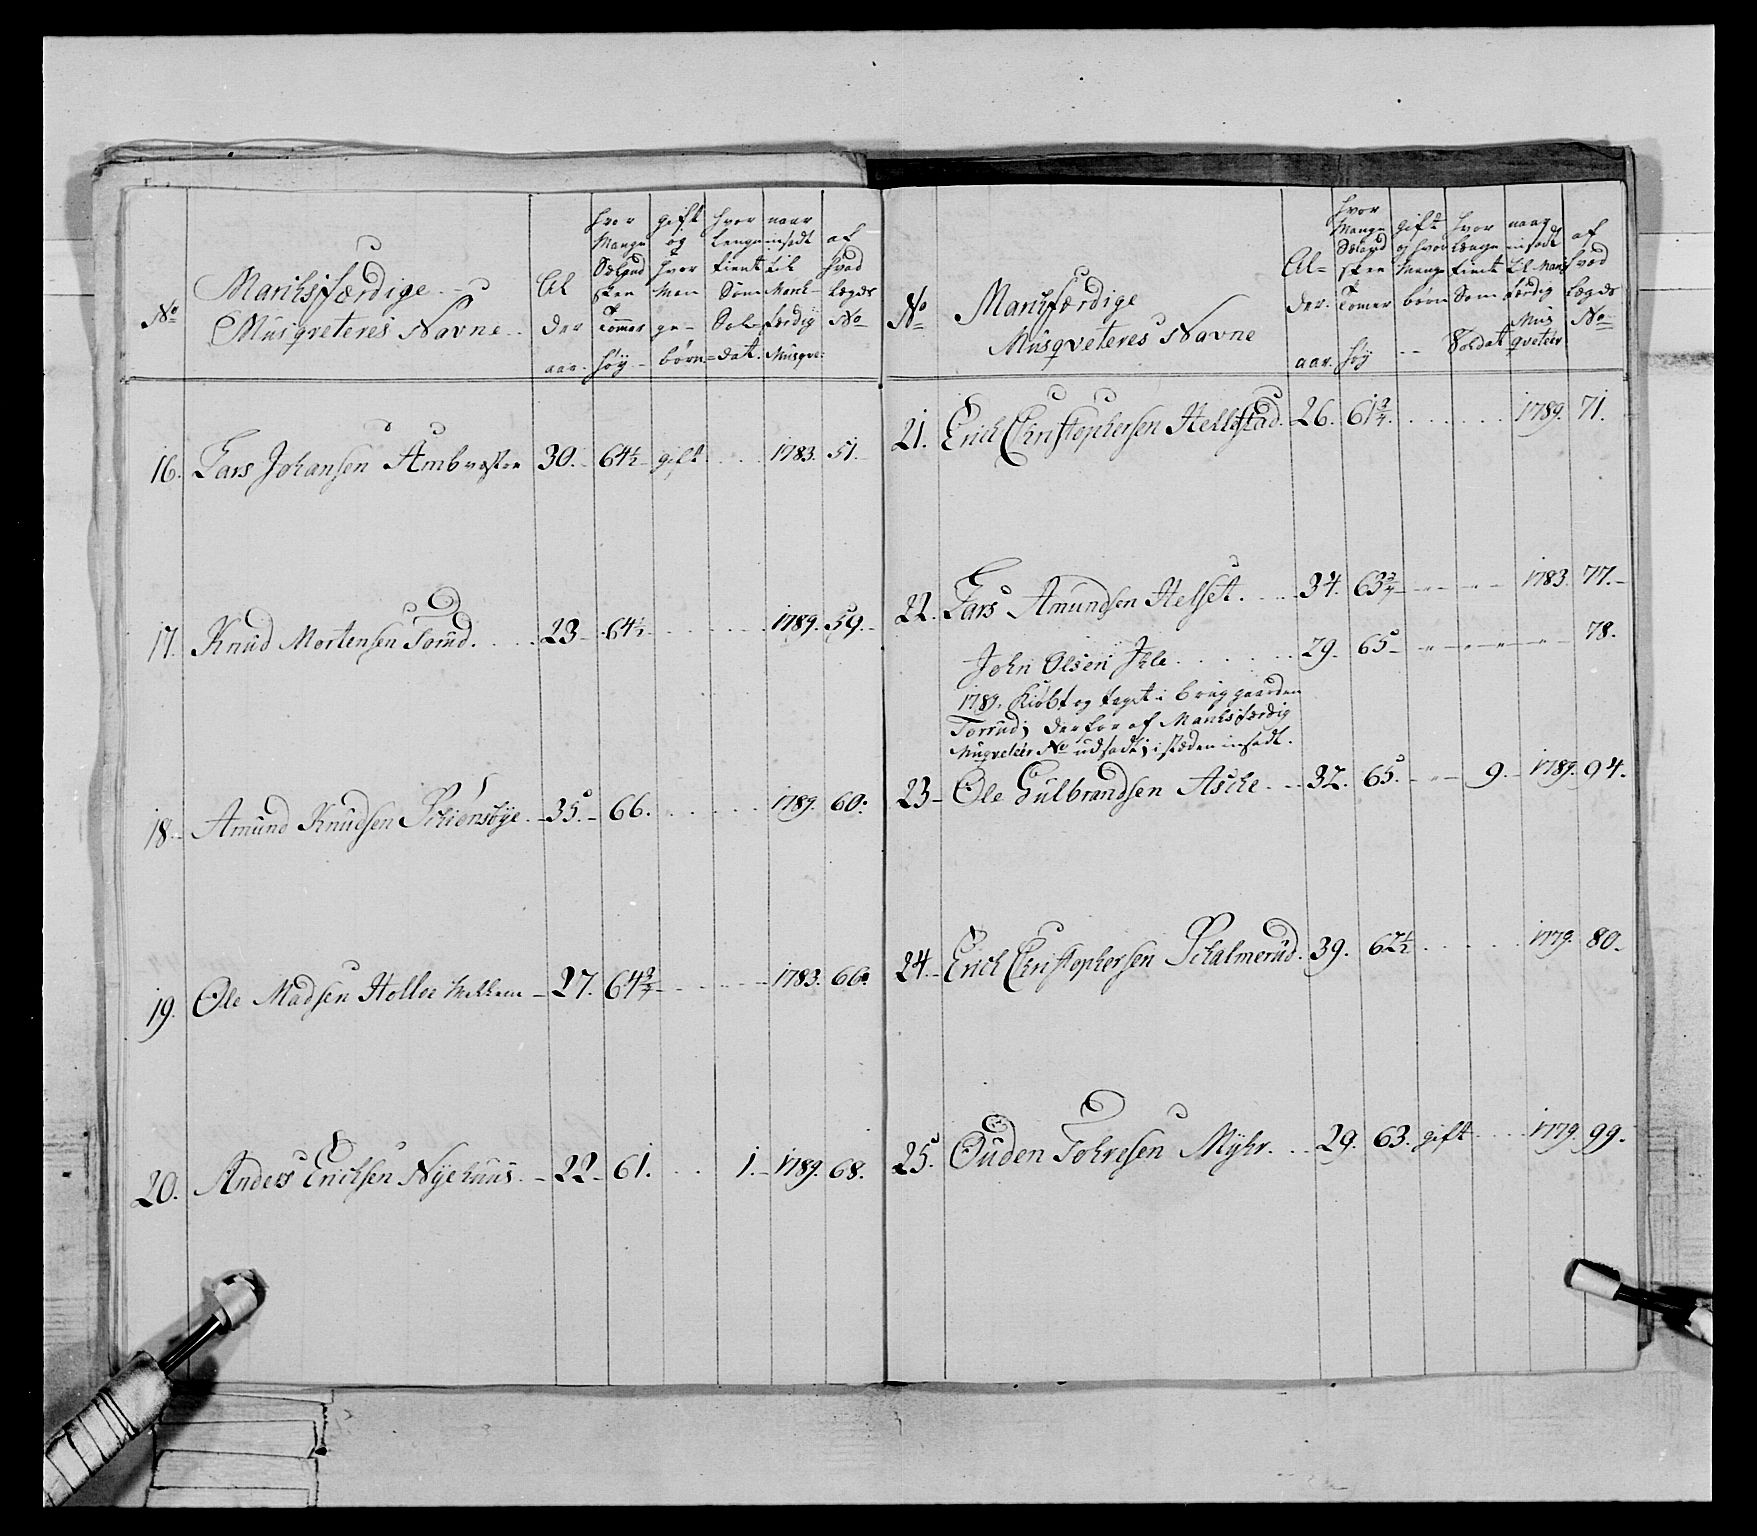 No Marchsfærdige Musqveteres Navne Al der aar. hvor Mange Sælgud sken Tommer høy gift og hvor Man ge børn hvor lenge tient Som Sol-dat. naar insadt til March-færdig Musqve: af hvad Legds No
16. Lars Johansen Ambræsten 30. 64½ gift 1783. 51.
17. Knud Mortensen Torud. 23 64½ 1789. 59.
18. Amund Knudsen Schiensøye. 35. 66. 1789. 60.
19. Ole Madsen Holloe 27. 64¾ 1783. 66.
20. Anders Erichsen Nyehuus. 22 61. 1. 1789. 68.
No Marchfærdige Musqveteres Navne Al= der. aar. hvor Mange Sælgud sken Tomer høy gift og hvor Mange børn hvor Længe tient Som Soldat naar insadt til March færdig Mus qveteer af hvad Lægds No
21. Erich Christophersen Hellestad. 26. 61¾ 1789. 71.
22. Lars Amundsen Helset. 34. 63¾ 1783. 77.
John Olsen Ihle 29. 65 78.
1789. Kiøbt og taget i brug gaarden
Torrud; derfor af Marchsfærdig
Muqveteer No udsadt; i stæden insadt.
23 Ole Gulbrandsen Asche 32. 65. 9. 1789. 94.
24. Erich Christophersen Schalmerud. 39. 62½ 1779. 80.
25. Ouden Tohresen Myhr. 29. 63. gift 1779. 99.